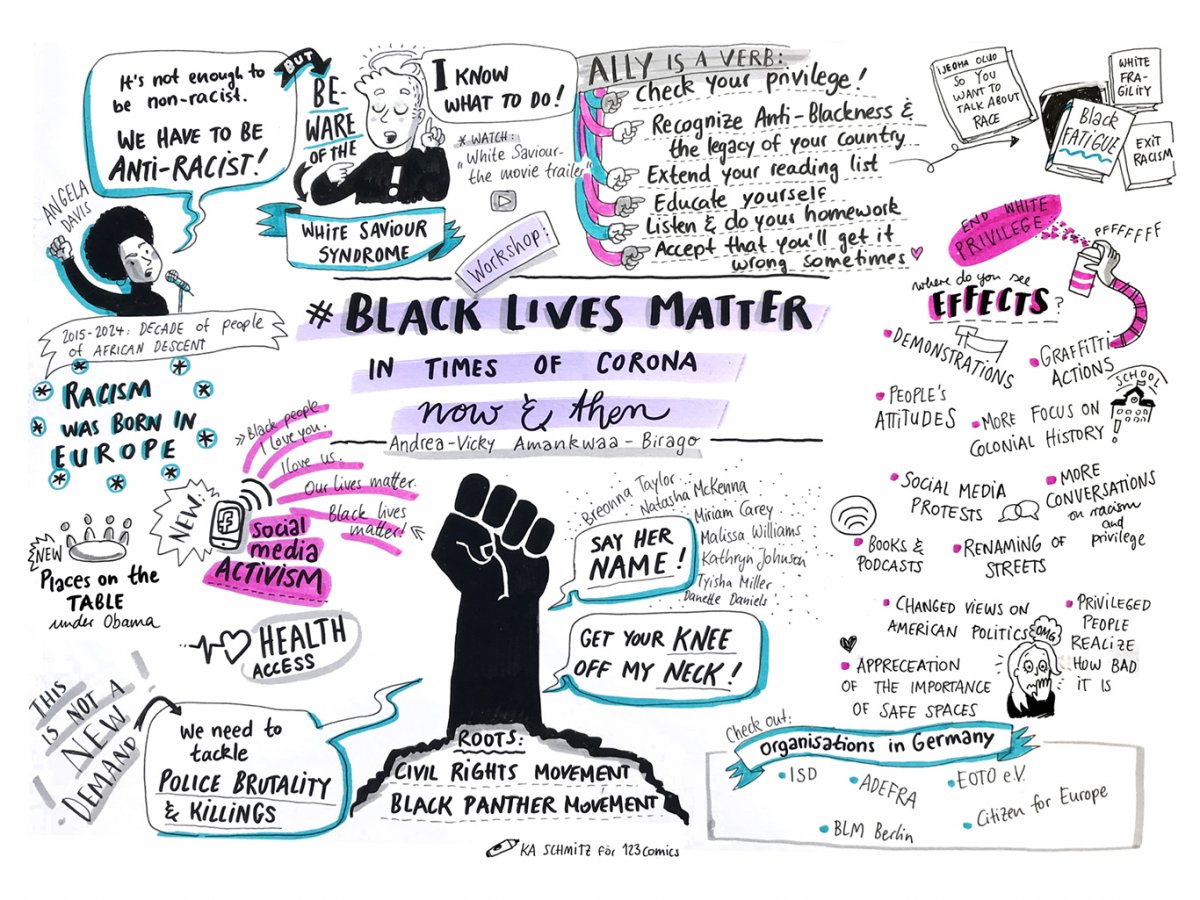 It's not enough to
be non-racist.
WE HAVE TO BE
ANTI-RACIST!
ANGELA
DAVIS
2015-2024: DECADE of people
of AFRICAN DESCENT
BUT
BE-
WARE
OF THE
!
WHITE SAVIOUR
SYNDROME
I KNOW
WHAT TO DO!
* WATCH:
"White Saviour-
the movie trailer"
ALLY IS A VERB:
Check your privilege!
Recognize Anti-Blackness &
the legacy of your country
Extend your reading list
Educate yourself
Listen & do your homework
Accept that you'll get it
wrong sometimes
IJEOMA OLUO
SO YOU
WANT TO
TALK ABOUT
RACE
WHITE
FRA-
GILITY
Black
FATIGUE
EXIT
RACISM
Workshop:
#BLACK LIVES MATTER
IN TIMES OF CORONA
now & then
Andrea-Vicky Amankwaa-Birago
RACISM
WAS BORN IN
EUROPE
NEW:
f
Social
media
ACTIVISM
» Black people
I love you.
I love us.
Our lives matter.
Black lives
matter! «
NEW
Places on the
TABLE
under Obama
HEALTH
ACCESS
THIS
IS NOT A
NEW
DEMAND
We need to
tackle
POLICE BRUTALITY
& KILLINGS
Breonna Taylor
Natasha McKenna
Miriam Carey
Malissa Williams
Kathryn Johnson
Tyisha Miller
Danette Daniels
SAY HER
NAME!
GET YOUR KNEE
OFF MY NECK!
ROOTS:
CIVIL RIGHTS MOVEMENT
BLACK PANTHER MOVEMENT
KA SCHMITZ för 123comics
END WHITE
PRIVILEGE
PFFFFFFF
where do you see
EFFECTS?
• DEMONSTRATIONS
• GRAFFITTI
ACTIONS
• PEOPLE'S
ATTITUDES
SCHOOL
• MORE FOCUS ON
COLONIAL HISTORY!
• SOCIAL MEDIA
PROTESTS
• MORE
CONVERSATIONS
on racism
and
privilege
• BOOKS &
PODCASTS
• RENAMING OF
STREETS
• CHANGED VIEWS ON
AMERICAN POLITICS
• PRIVILEGED
PEOPLE
REALIZE
HOW BAD
IT IS
OMG
• APPRECEATION
OF THE IMPORTANCE
OF SAFE SPACES
Check out:
Organisations in Germany
• ISD
• ADEFRA
• EOTO e.V.
• BLM Berlin
• Citizen for Europe